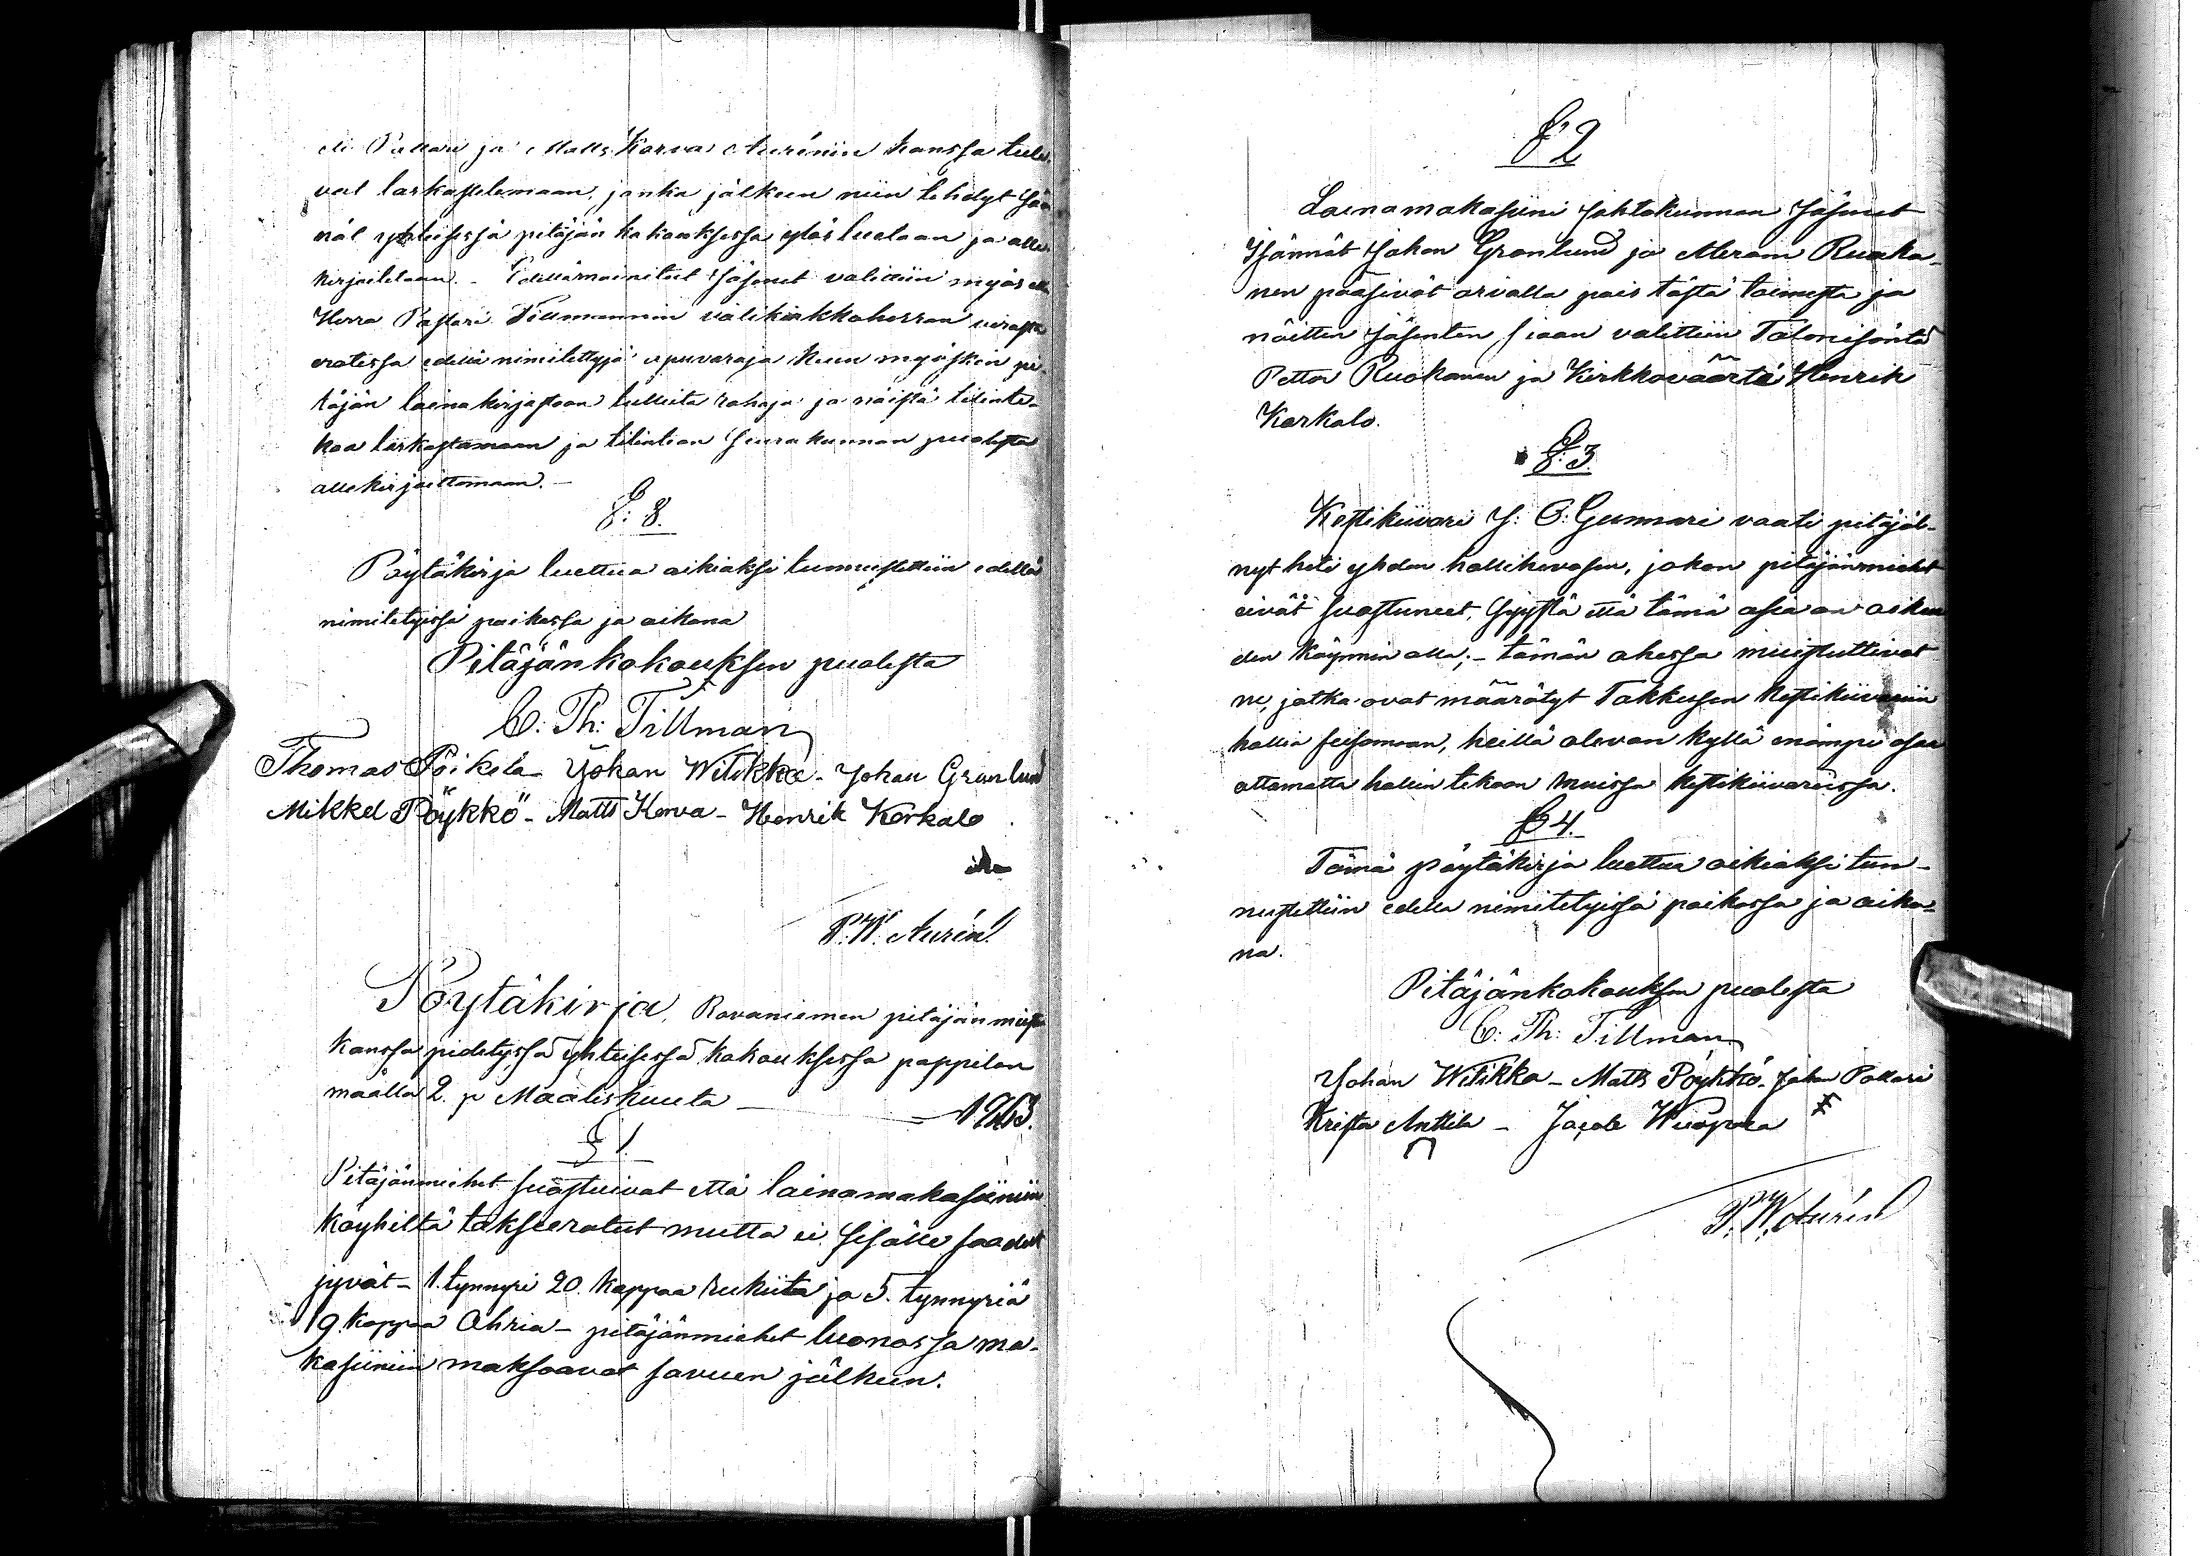 Pallari ja Matts Korva Aurénin kanssa tule-
vat tarkastelemaan, jonka jälkeen niin tehdyt sään
nöt yhteisessä pitäjän kokouksessa ylösluetaan ja alle
kirjoitetaan. - Edellämainitut jäsenet valittiin myös
Herra Pastori Tillmannin välikirkkoherran
erotessa edellä nimitettyjä apuvaroja kuin myöskin pi-
täjän lainakirjastoon tulleita rahoja ja näistä tilinte-
koa tarkastamaan ja seurakunnan puolesta
allekirjoittamaan. -
§: 8.
Pöytäkirja luettua oikiaksi tunnustettiin edellä
nimitetyissä paikassa ja aikana
Pitäjänkokouksen puolesta
C: Th: Tillman
Thomas Poikela - Johan Witikka - Johan Granlund
Mikkel Pöykkö - Matts Korva - Henrik Korkalo
P. W. Aurén
Pöytäkirja, Rovaniemen pitäjän miesten
kanssa pidetyssä yhteisessä kokouksessa pappilan
määllä 2. p Maaliskuuta — 1863.
§ 1.
Pitäjänmiehet suostuivat että lainamakasiiniin
köyhiltä takseeratut mutta ei sisälle saadut
jyvät - 1. tynnyri 20. kappaa rukiita ja 5. tynnyriä
19 kappaa Ohria - pitäjänmiehet luonossa ma-
kasiiniin maksaavat savuen jälkeen.
§ 2
Lainamakasiini johtokunnan jäsenet
Isännät Johan Granlund ja Abram Ruoka-
nen pääsivät arvalla pois tästä toimesta ja
näitten jäsenten siaan valittiin Talonisäntä
Petter Ruokanen ja Kirkkoväärtä Henrik
Korkalo.
§: 3.
Kestikiivari J: O: Gummari vaati pitäjäl-
nyt heti yhden hollihevosen, johon pitäjänmiehet
eivät suostuneet, syystä että tämä asia on oikeu
den käynnin alla; - tämän ohessa muistuttivat
ne, jotka ovat määrätyt Takkusen kestikiivariin
hollia seisomaan, heillä olevan kyllä enämpi osaa
ottamatta hollin tekoon muissa kestikiivariissa.
§ 4.
Tämä pöytäkirja luettua oikiaksi tun-
nustettiin edellä nimitetyissä paikassa ja aika-
na.
Pitäjänkokouksen puolesta
C: Th: Tillman
Johan Witikka - Matts Pöykkö - Johan Pallari
Krister Anttila - Jacob Wuopala
P. W. Aurén